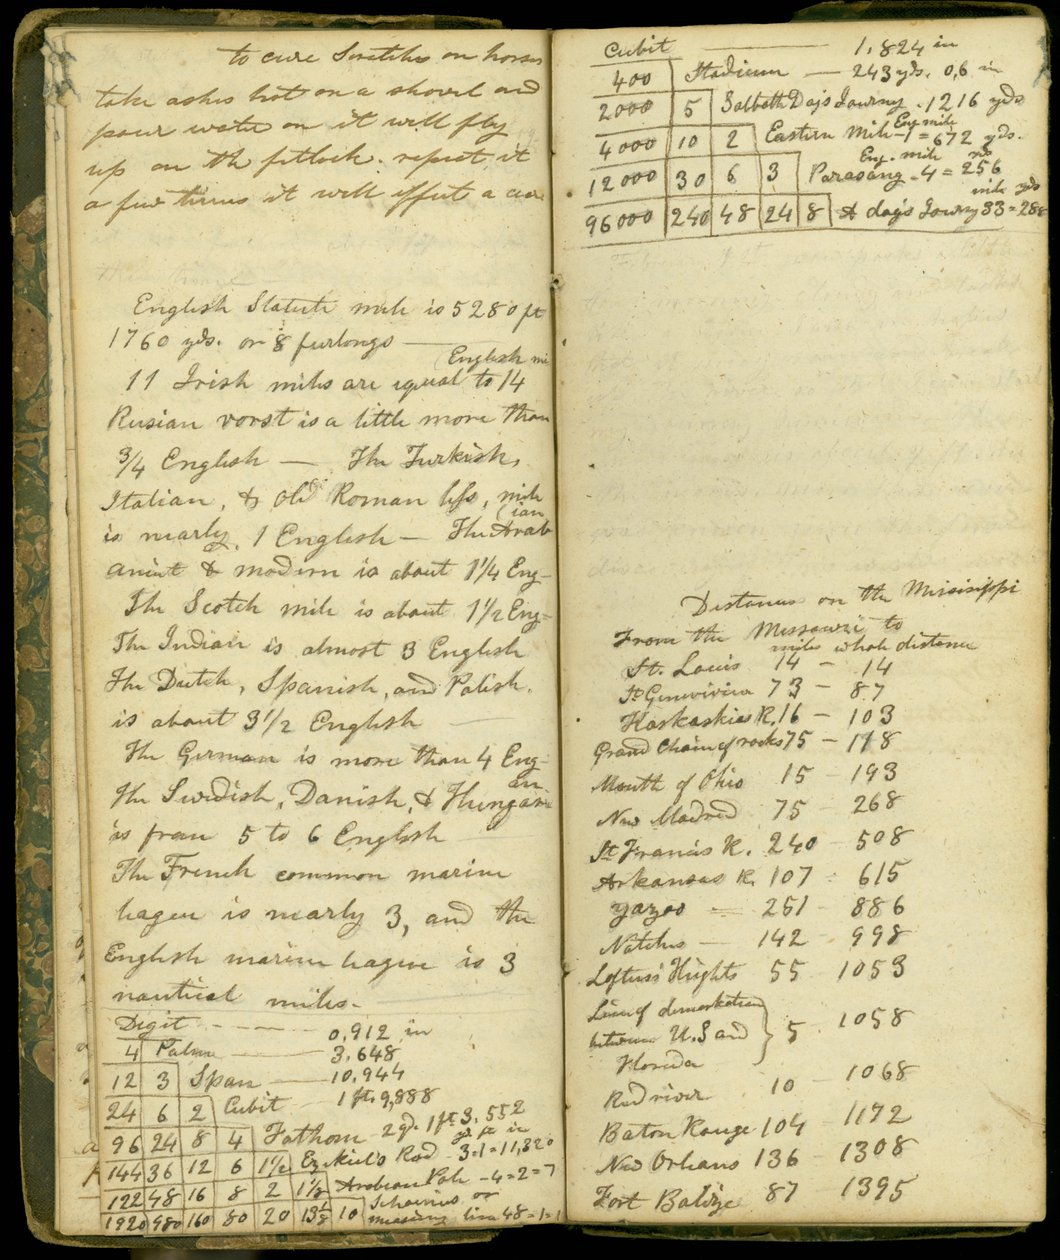 to cure Scratches on horses
take ashes hot on a shovel and
pour water on it will fly
up on th fetlock. repeet it
a few times it will effect a cure
English Statute mile is 5280 ft
1760 yds. or 8 furlongs —
(English mi
11 Irish miles are equal to 14
Rusian vorst is a little more than
3/4 English — The Turkish,
Italian, & Old Roman less, mile
is nearly, 1 English — The Arab
(ian
anient & modern is about 1 1/4 Eng-
The Scotch mile is about 1 1/2 Eng=
The Indian is almost 3 English
The Dutch, Spanish, and Polish.
is about 3 1/2 English
The German is more than 4 Eng-
The Swedish, Danish, & Hungari
an
is from 5 to 6 English
The French common marine
leagu is nearly 3, and the
English marine leagu is 3
nautical miles.
Digit - - - - 0,912 in
4 Palm — 3,648
12 3 Span — 10,944
24 6 2 Cubit — 1 ft. 9,888
96 24 8 4 Fathom - 2 yd. 1 ft 3, 552
yd ft in
144 36 12 6 1 1/2 Ezekiel's Rod - 3=1=11,32 0
122 48 16 8 2 1 1/3 Arabean Pole - 4=2=7
1920 480 160 80 20 13 1/3 10 Schoenus or
measuring line 48=1=1
Cubit — 1,824 in
400 Stadium — 243 yds. 0,6 in
2000 5 Sabbath Days Journy - 1216 yds
Eng mile
4000 10 2 Eastern Mile - 1 = 672 yds.
Eng. mile yds
12000 30 6 3 Parasang - 4 = 256
mile yds
96000 240 48 24 8 A days Journy 33=288
Distances on the Missisippi
From the Missouri to
miles whole distance
St. Louis 14 - 14
St Genevivieu 73 - 87
Kaskaskias R. 16 - 103
Grand Chain of rocks 75 - 178
Mouth of Ohio 15 - 193
New Madrid 75 - 268
St Francis R. 240 - 508
Arkansas R. 107 - 615
Yazoo — 251 - 886
Natches — 142 - 998
Loftuss Hights 55 - 1053
Line of demarkation
between U.S and } 5 - 1058
Florida
Red river 10 - 1068
Baton Rouge 104 1172
New Orleans 136 - 1308
Fort Balize 87 - 1395